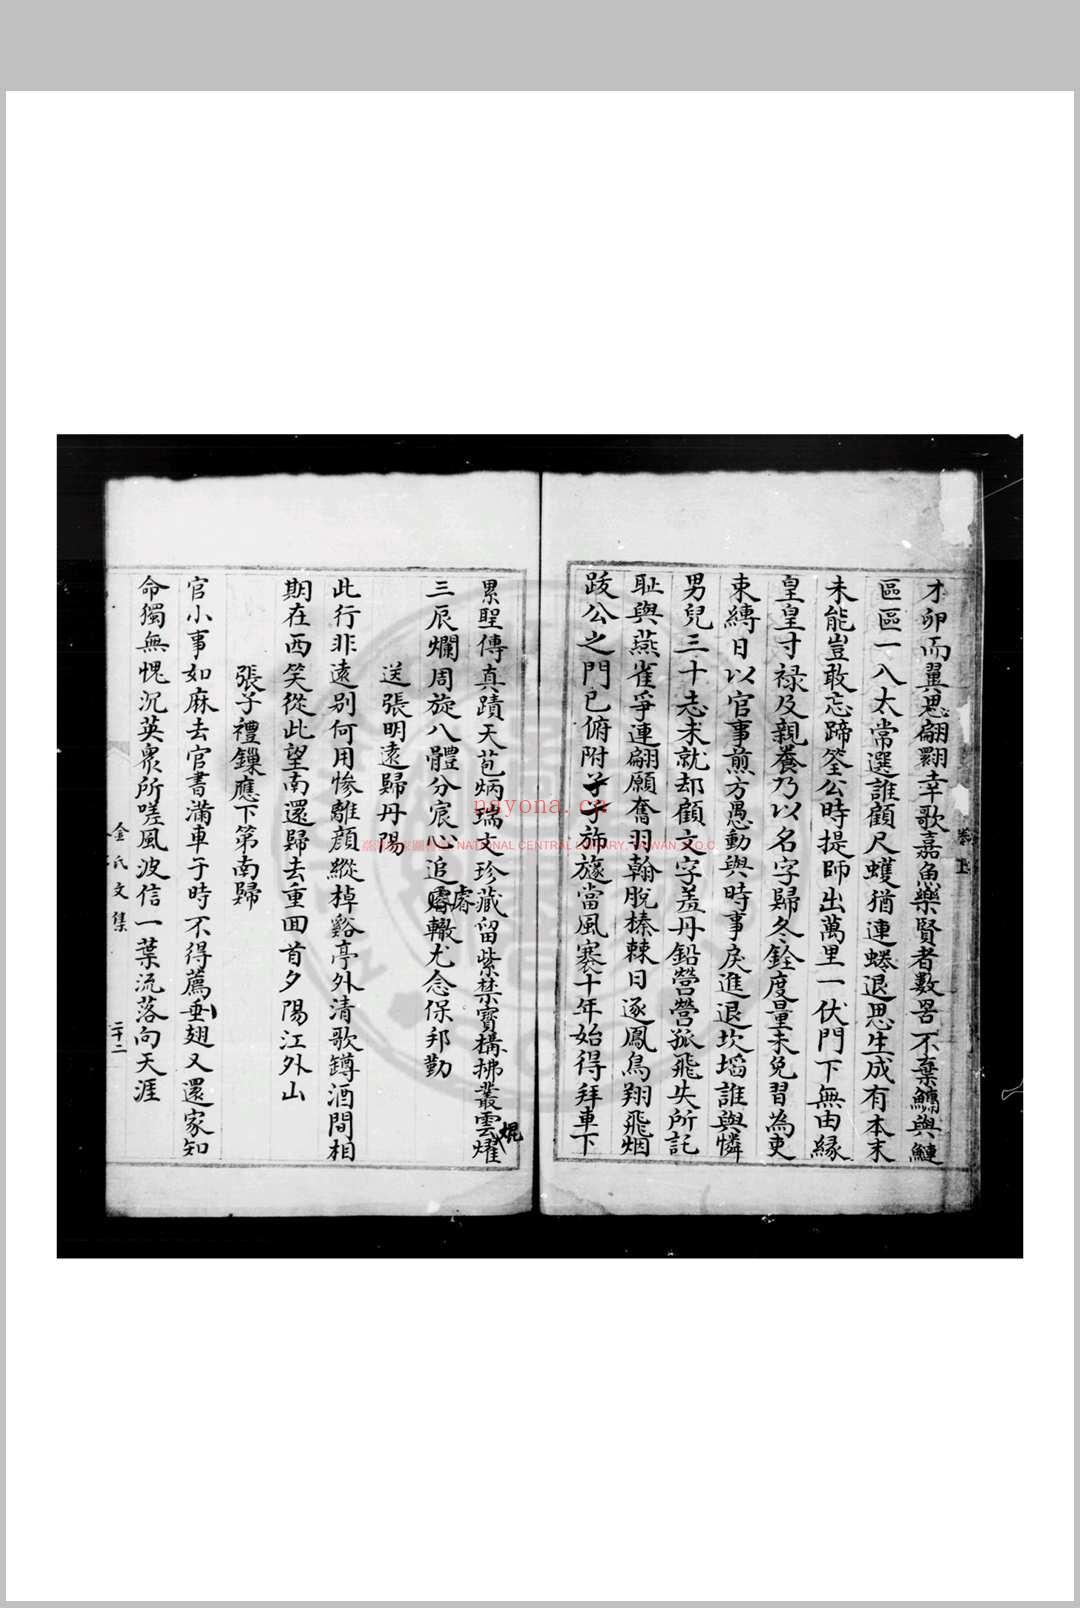 才卵而翼思翩翾幸歌嘉魚樂賢者數罟不棄鱅與鰱
區區一入太常選誰顧尺蠖猶連蜷退思生成有本末
未能豈敢忘蹄筌公時提師出萬里一伏門下無由緣
皇皇寸祿及親養乃以名字歸冬銓度量未免習為吏
束縛日以官事煎方愚動與時事戾進退坎壈誰與憐
男兒三十志未就却顧文字羞丹鉛營營孤飛失所託
耻與燕雀爭連翩願奮羽翰脫榛棘日逐鳳鳥翔飛烟
跋公之門已俯附孑孑旆旟當風搴十年始得拜車下
卷上
累聖傳真蹟天苞炳瑞文珍藏留紫禁寶構拂叢雲燿
焜
三辰爛周旋八體分宸心追睿轍尤念保邦勤
睿
送張明遠歸丹陽
此行非遠別何用慘離顏縱棹谿亭外清歌罇酒間相
期在西笑從此望南還歸去重回首夕陽江外山
張子禮鏁應下第南歸
官小事如麻去官書滿車于時不得薦垂翅又還家知
命獨無愧沉英衆所嗟風波信一葉流落向天涯
金氏文集
二十二
nayona.cn
臺灣國家圖書館 NATIONAL CENTRAL LIBRARY, TAIWAN, R.O.C.